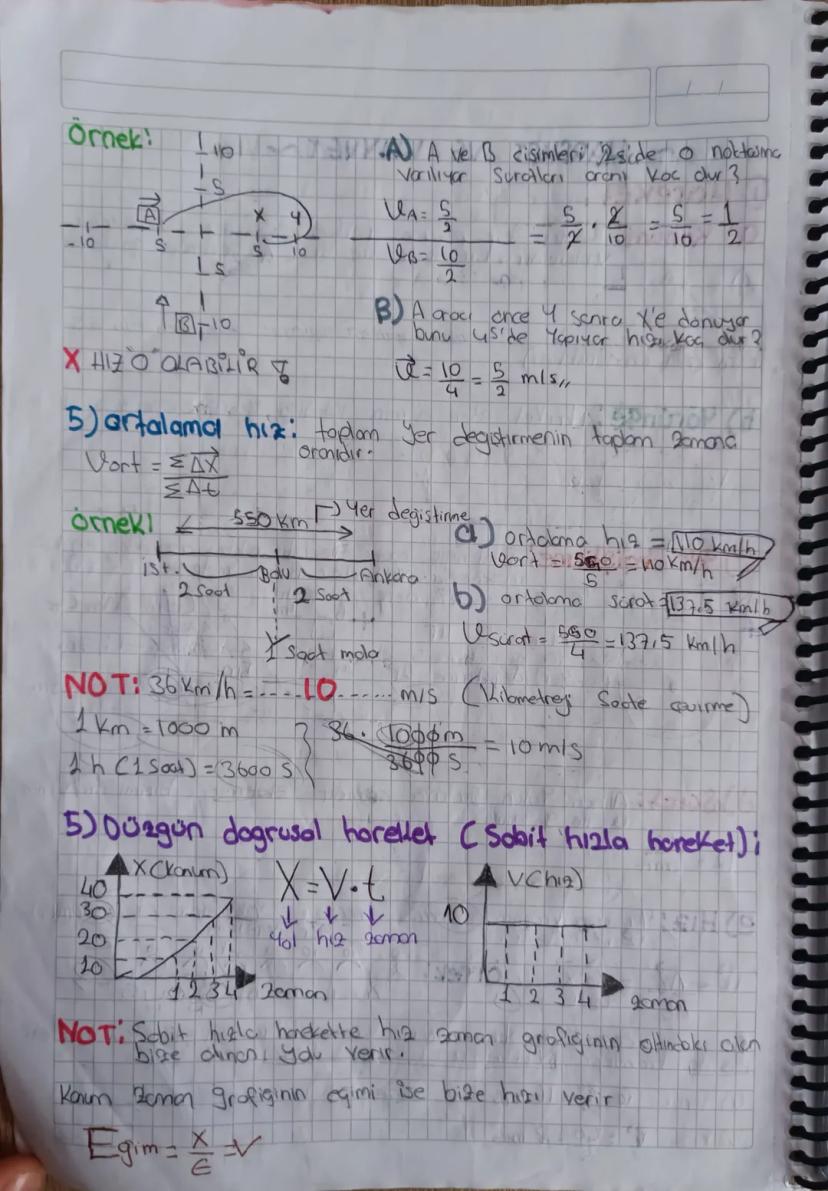 Örnek:
A) A ve B cisimleri 2s'de O noktasına
varılıyor Süratleri oranı kaç dır?
10
5
A
X Y
-10 5 5 10
5
B -10
VA = 5/2
VB = 10/2
= 5/2 . 2/10 = 5/10 = 1/2
B) A aracı önce Y sonra X'e dönüyor
bunu 4s'de yapıyor hızı kaç dır?
V = 10/4 = 5/2 m/s,,
X HIZ "O" OLABİLİR
5) ortalama hız: toplam yer degistirmenin toplam zamana
oranıdır.
Vort = ΣΔX / ΣΔt
örnek!
550 km
Yer degistirme
ist. Bolu Ankara
2 saat 2 saat
1 saat mola
a) ortalama hız = 110 km/h
Vort = 550/5 = 110 km/h
b) ortalama sürat = 137,5 km/h
Vsürat = 550/4 = 137,5 km/h
NOT: 36 km/h = ....10...... m/s (Kilometreyi Saate çevirme)
1 km = 1000 m
1 h (1 saat) = 3600 s
36. 1000m / 3600 s = 10 m/s
5) Düzgün dogrusal hareket (Sabit hızla hareket);
X(konum)
40
30
20
10
1 2 3 4 zaman
X = V.t
yol hız zaman
V(hız)
10
1 2 3 4 zaman
NOT: Sabit hızla harekette hız zaman grafiginin altındaki alan
bize alınan yolu verir.
Konum zaman grafiginin egimi ise bize hızı verir
Egim = X/t = V